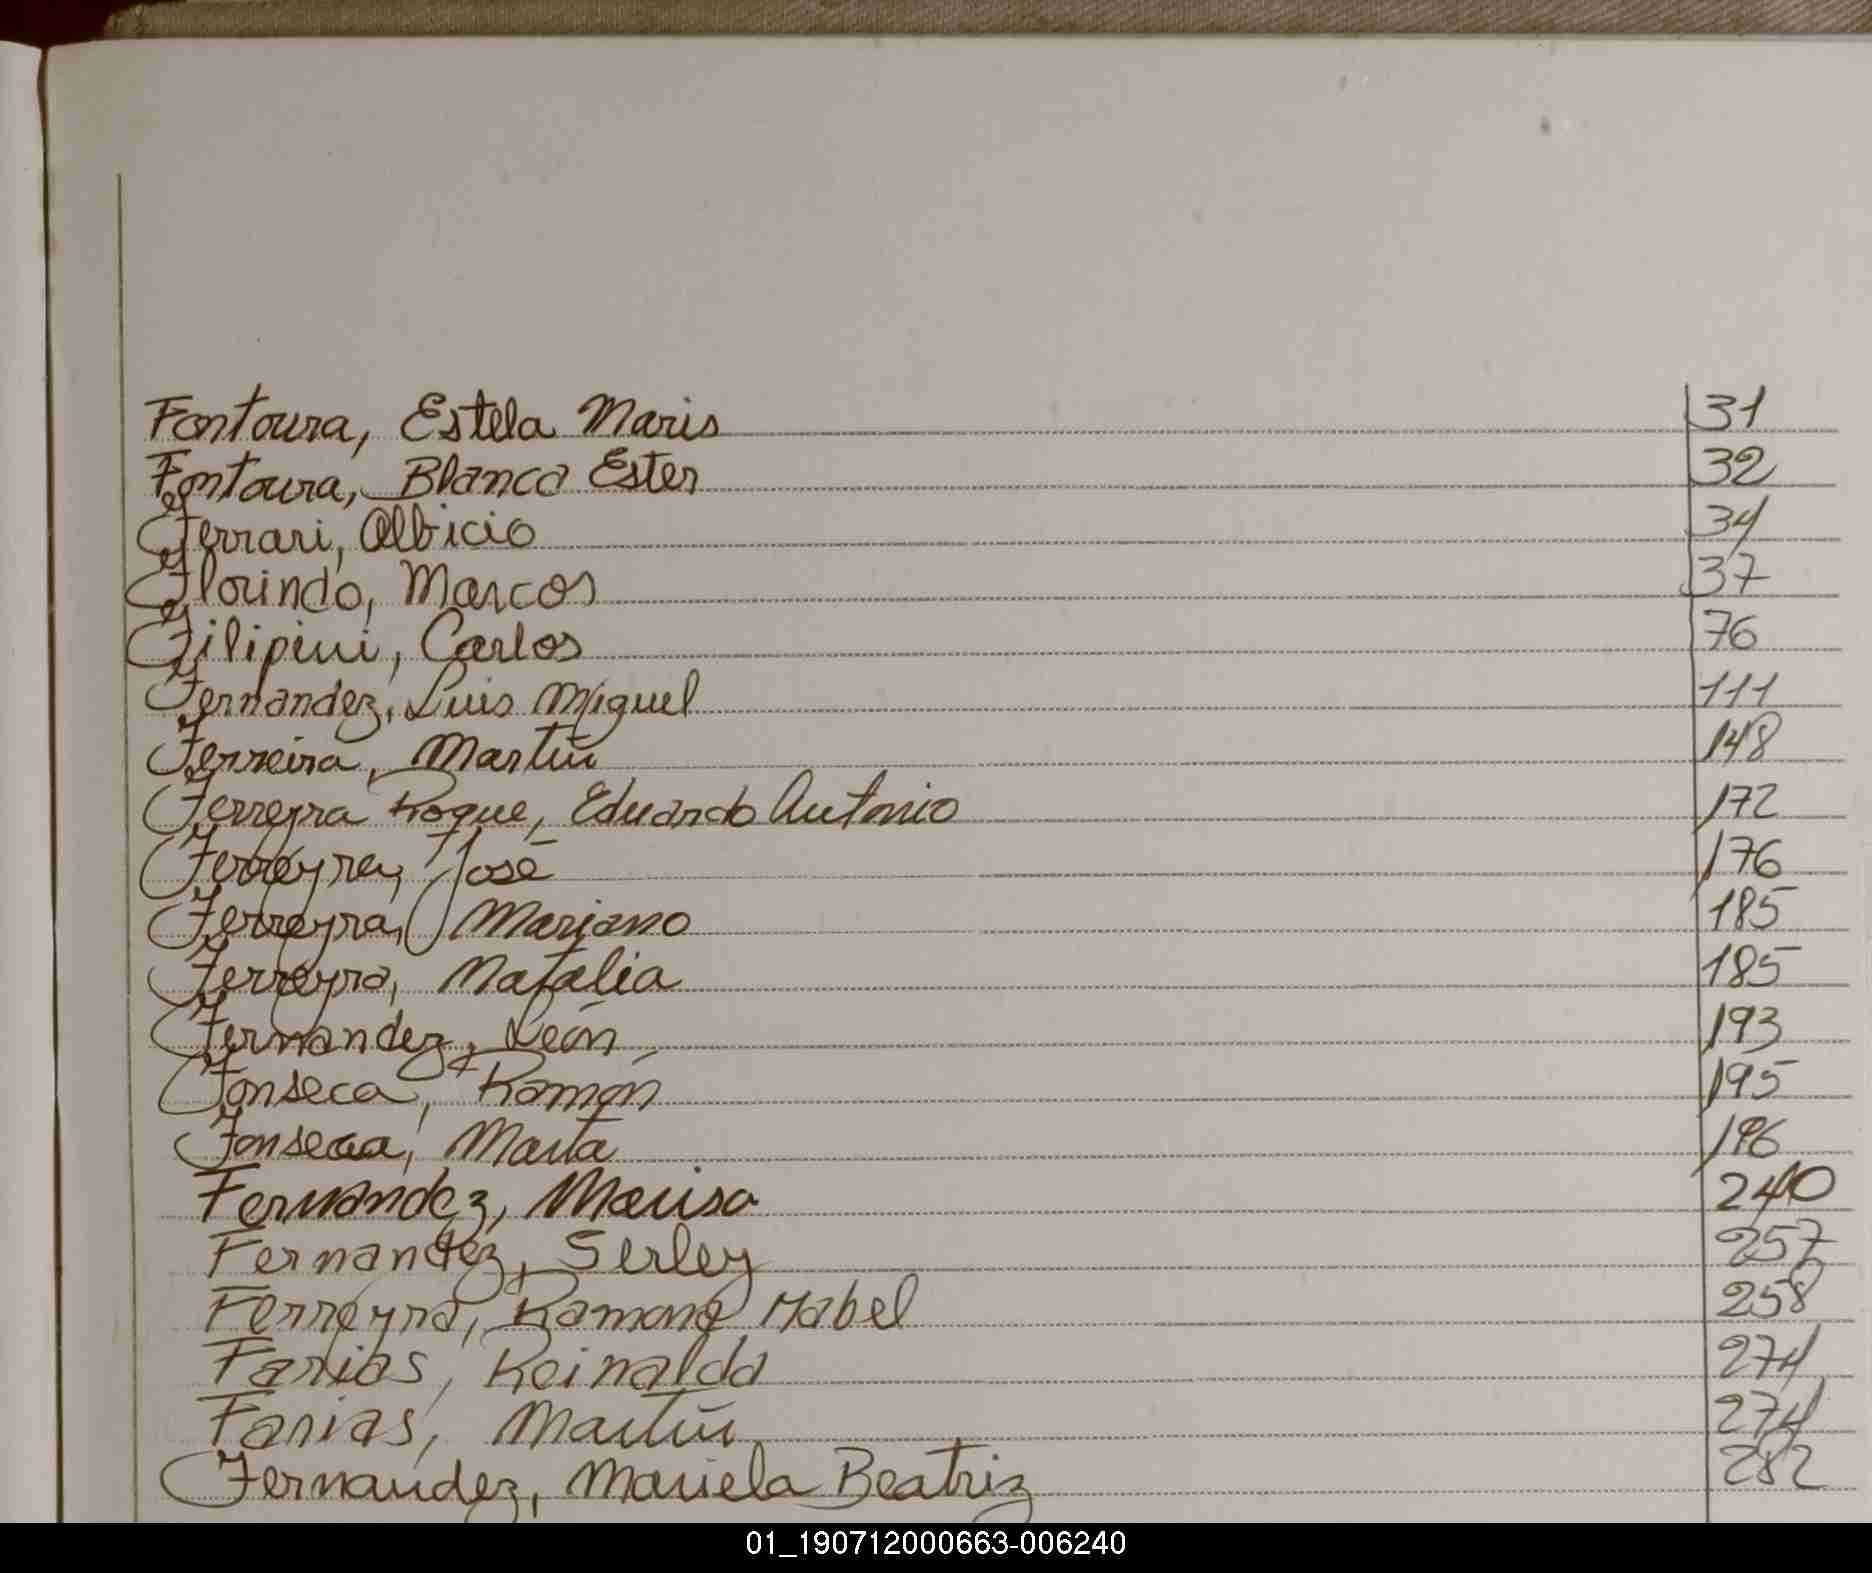 Fontoura, Estela Maris 31
Fontoura, Blanca Ester 32
Ferrari, Albicio 34
Florindo, Marcos 37
Filipini, Carlos 76
Fernandez, Luis Miguel 111
Ferreira, Martín 148
Ferreyra Roque, Eduardo Antonio 172
Ferreyra, José 176
Ferreyra, Mariano 185
Ferreyra, Natalia 185
Fernandez, León 193
Fonseca, Ramón 195
Fonseca, Marta 196
Fernandez, Marisa 240
Fernandez, Serley 257
Ferreyra, Ramona Mabel 258
Farias, Reinaldo 274
Farias, Martín 274
Fernandez, Mariela Beatriz 282
01_190712000663-006240